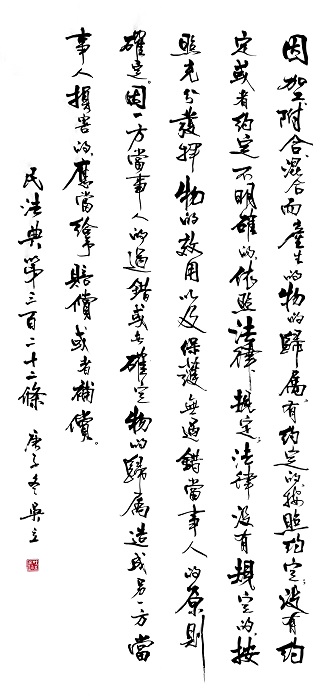 因加工附合混合而產生的物的歸屬。有約定的。按照約定。沒有約
定或者約定不明確的。依照法律規定。法律沒有規定的。按
照充分發揮物的效用以及保護無過錯當事人的原則
確定。因一方當事人的過錯或者確定物的歸屬造成另一方當
事人損害的。應當給予賠償或者補償。
民法典第三百二十二條 庚子冬吳立